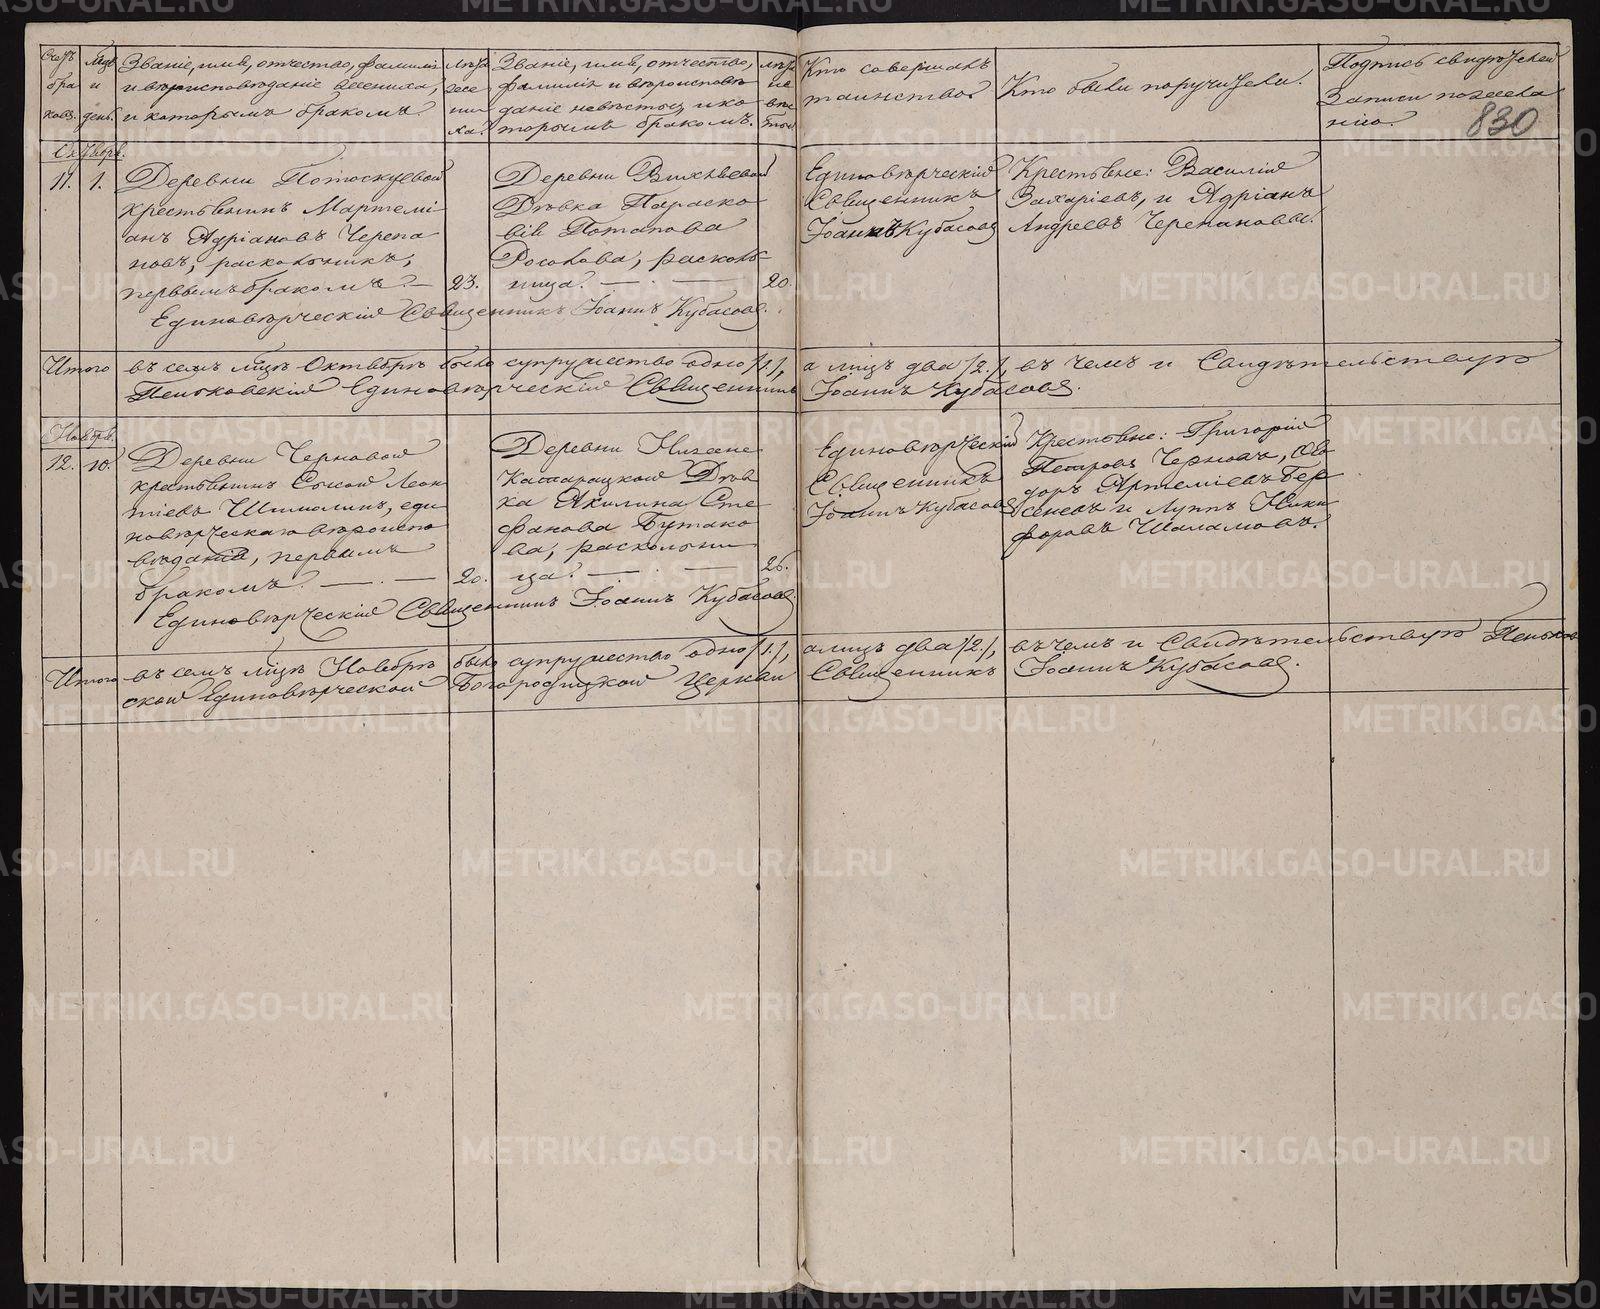 Счетъ браковъ.
Мѣсяцъ и день.
Званіе, имя, отчество, фамилія
и вѣроисповѣданіе жениха,
и которымъ бракомъ.
Лѣта жениха.
Званіе, имя, отчество,
фамилія и вѣроисповѣ-
даніе невѣсты, и ко-
торымъ бракомъ.
Лѣта невѣсты.
Кто совершалъ
таинство.
Кто были поручители.
Подпись свидѣтелей
записи по желанію.
830
Октябрь.
11. 1.
Деревни Потоскуевой
крестьянинъ Мартемі-
анъ Адріановъ Черепа-
новъ, раскольникъ,
первымъ бракомъ.
23.
Деревни
Дѣвка Параско-
вія Потапова
расколь-
ница.
20.
Единовѣрческій
Священникъ
Іоаннъ Кубасовъ
Крестьяне: Василій
Захаріевъ, и Адріанъ
Андреевъ Черепановы.
Единовѣрческій Священникъ Іоаннъ Кубасовъ.
Итого въ семъ мѣсяцѣ Октябрѣ было супружество одно /1./, а лицъ два /2./, въ чемъ и Свидѣтельствую
Пеньковскій Единовѣрческій Священникъ Іоаннъ Кубасовъ.
Ноябрь.
12. 10.
Деревни Черновой
крестьянинъ Леон-
тіевъ еди-
новѣрческаго вѣроиспо-
вѣданія, первымъ
бракомъ.
20.
Деревни Нижне-
Катарацкой Дѣв-
ка Акилина Сте-
фанова Бутако-
ва, расколни-
ца.
26.
Единовѣрческій
Священникъ
Іоаннъ Кубасовъ
Крестьяне: Григорій
Петровъ Черновъ, Ѳео-
доръ Артеміевъ Бер-
сеневъ и Луппъ Ники-
форовъ Шаламовъ.
Единовѣрческій Священникъ Іоаннъ Кубасовъ.
Итого въ семъ мѣсяцѣ Ноябрѣ было супружество одно /1./, а лицъ два /2./, въ чемъ и Свидѣтельствую Пеньков-
ской Единовѣрческой Богородицкой Церкви Священникъ Іоаннъ Кубасовъ.
METRIKI.GASO-URAL.RU